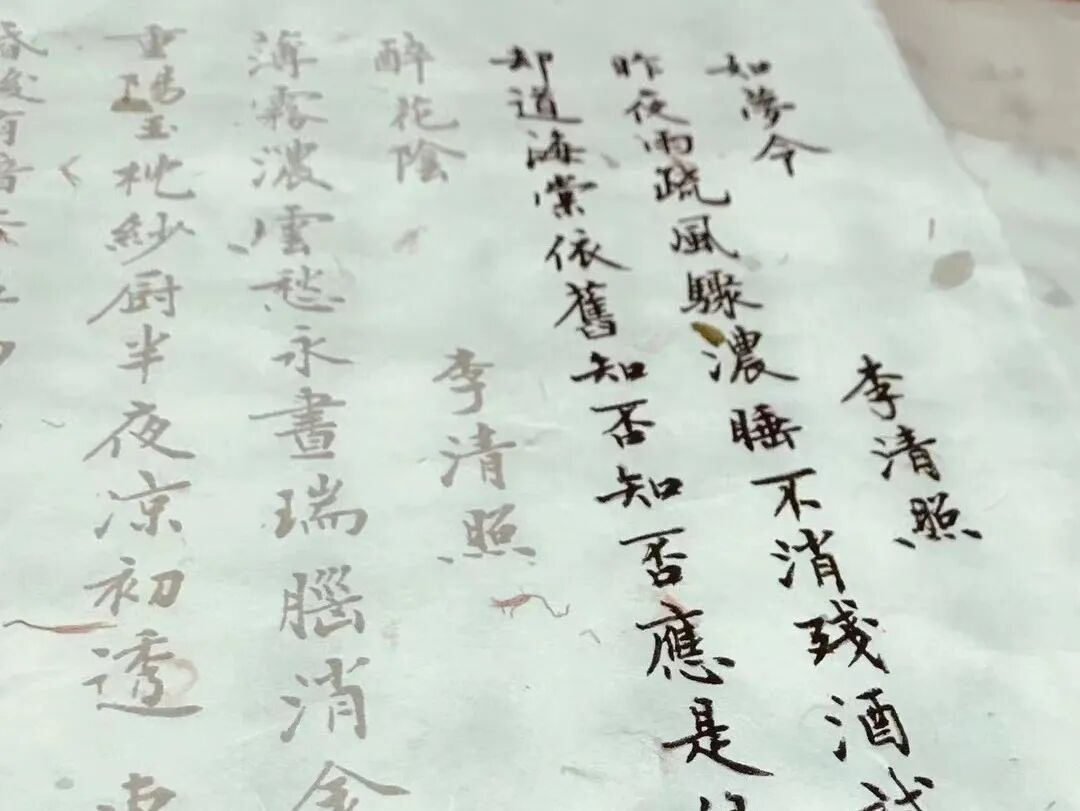 如夢令
李清照
昨夜雨疏風驟濃睡不消殘酒試
却道海棠依舊知否知否應是
醉花陰
李清照
薄霧濃雲愁永晝瑞腦消金
重陽玉枕紗厨半夜凉初透
昏後有暗